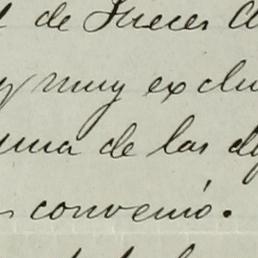 de Jueces
y muy exclu
una de las d
convenió.